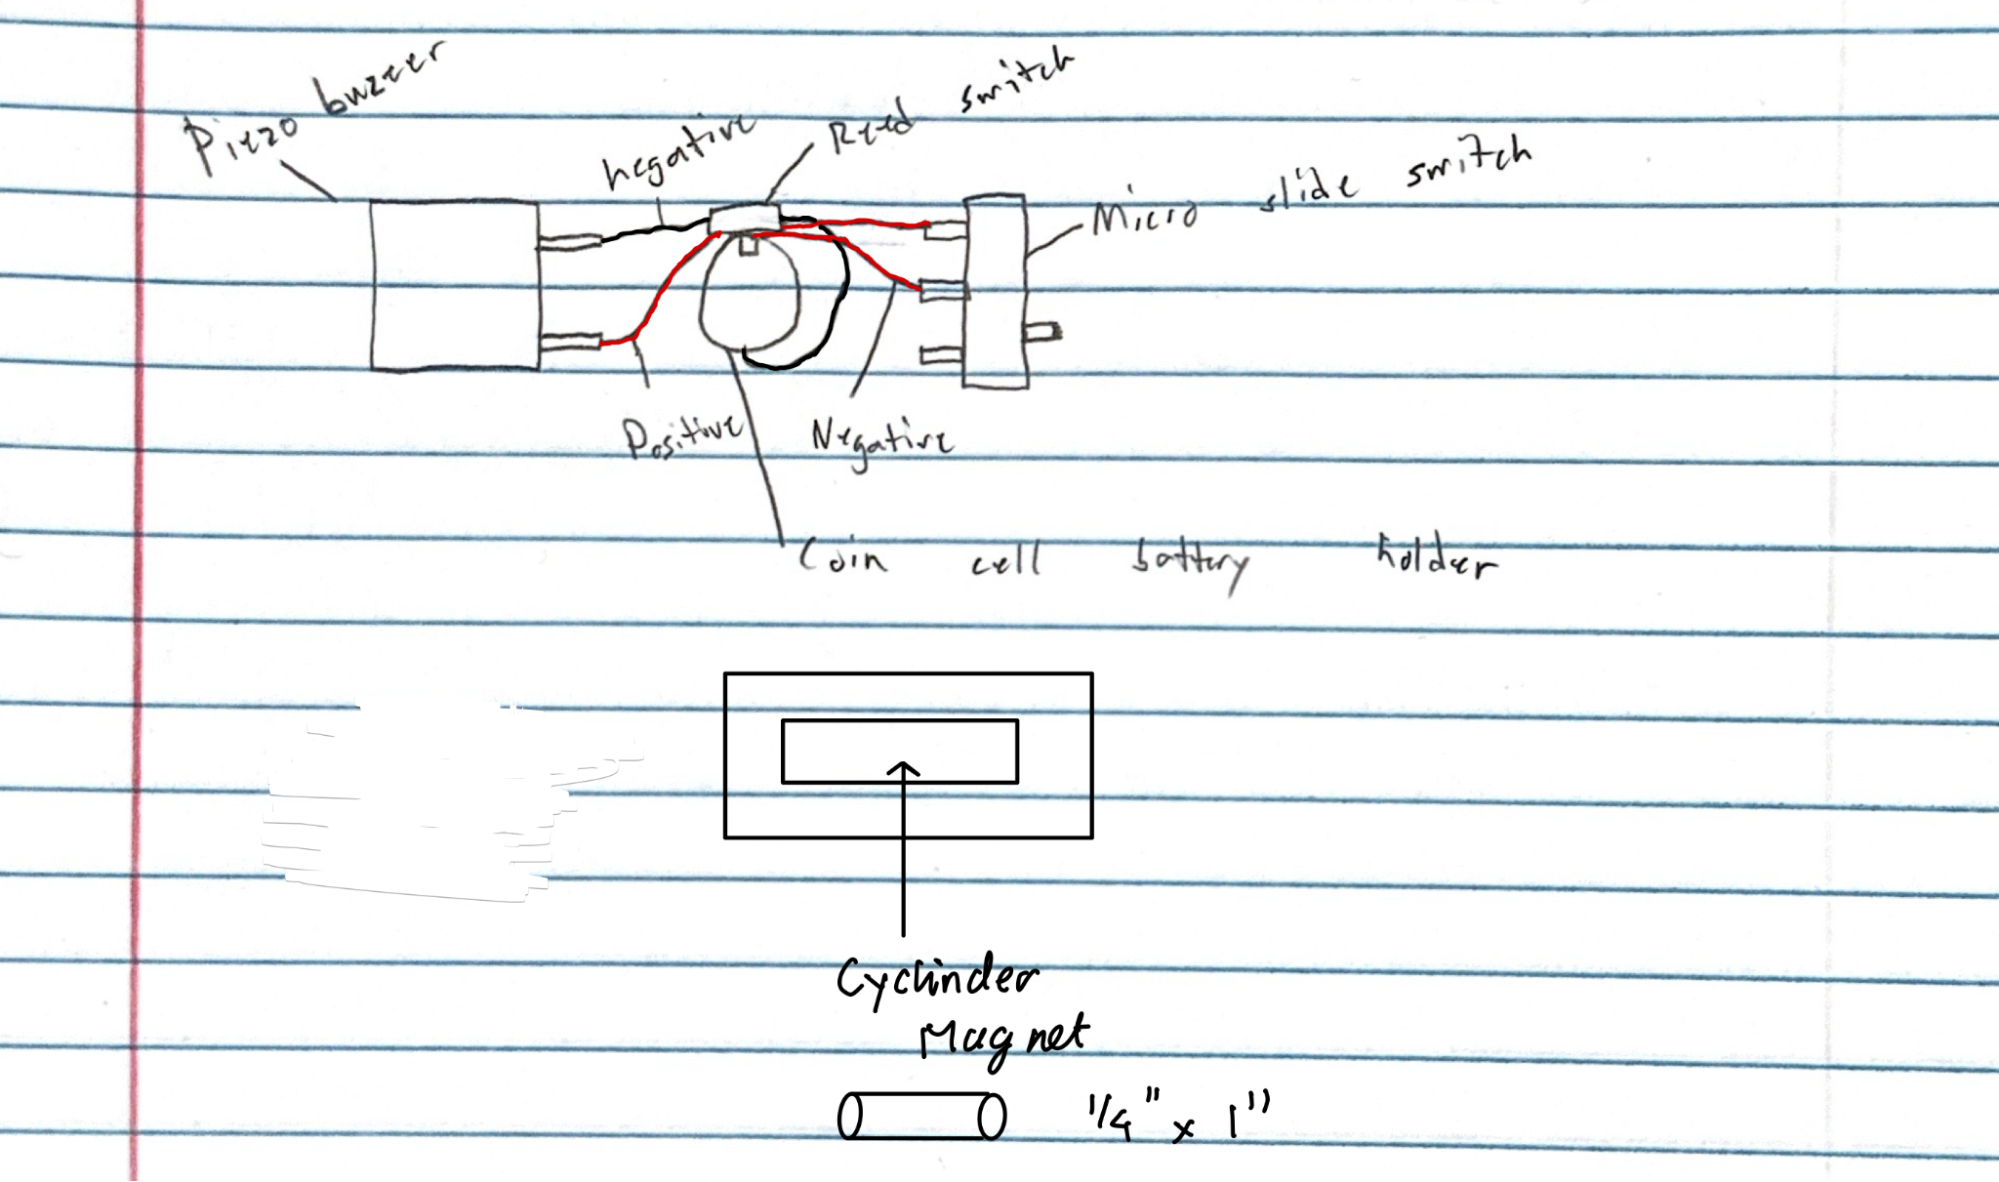 Piezo buzeer
negative
Reed switch
Micro slide switch
Positive
Negative
Coin cell battery holder
Cyclinder
Magnet
1/4" x 1"